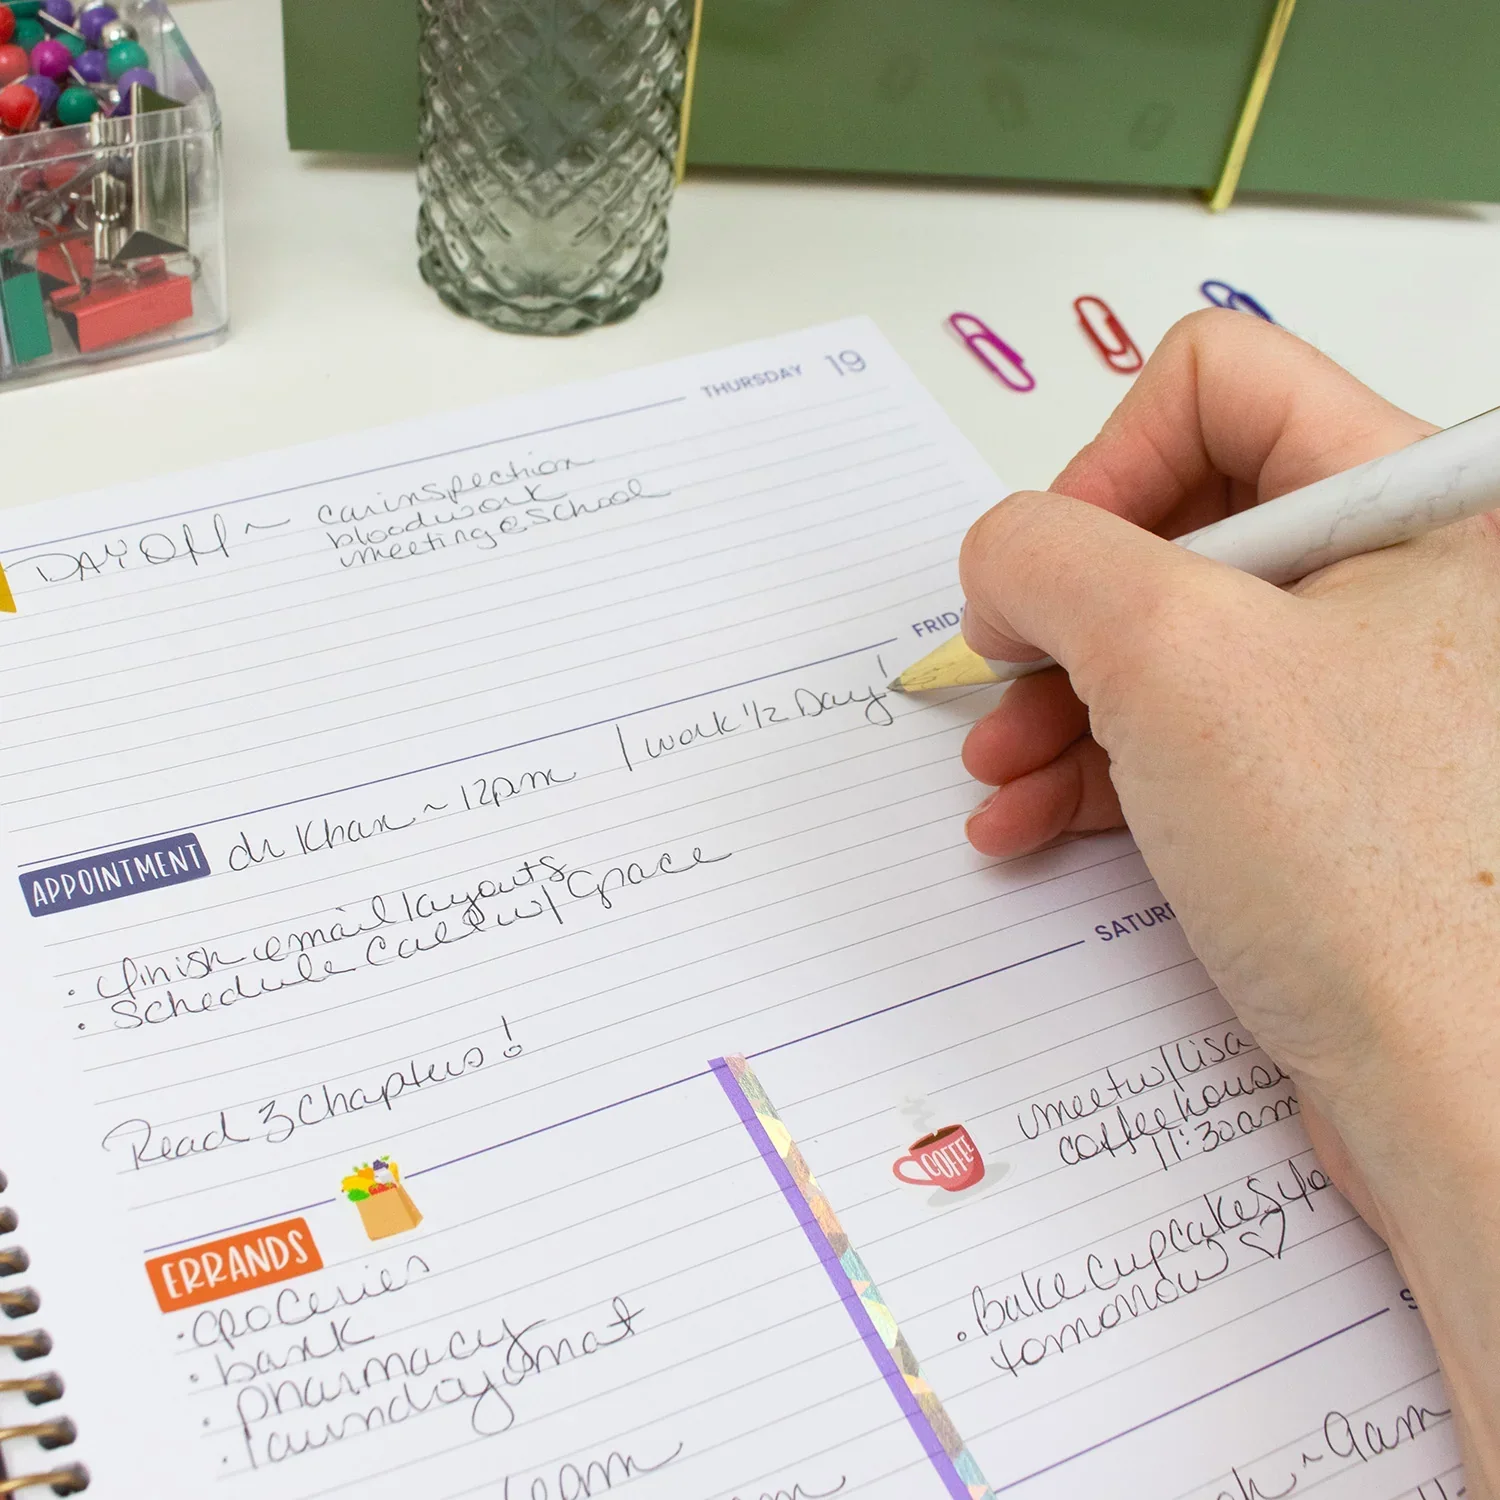 THURSDAY 19
DAY OFF ~ car inspection
bloodwork
meeting @ School
FRID
APPOINTMENT dr Khan ~ 12pm / work 1/2 Day!
• finish email layouts
• Schedule Call w/ Grace
Read 3 Chapters!
SATUR
ERRANDS
• groceries
• bank
• pharmacy
• laundry omat
COFFEE
meet w/ Lisa
coffee house
11:30am
• Bake Cupcakes
tomorrow ♡
S
~ 9am